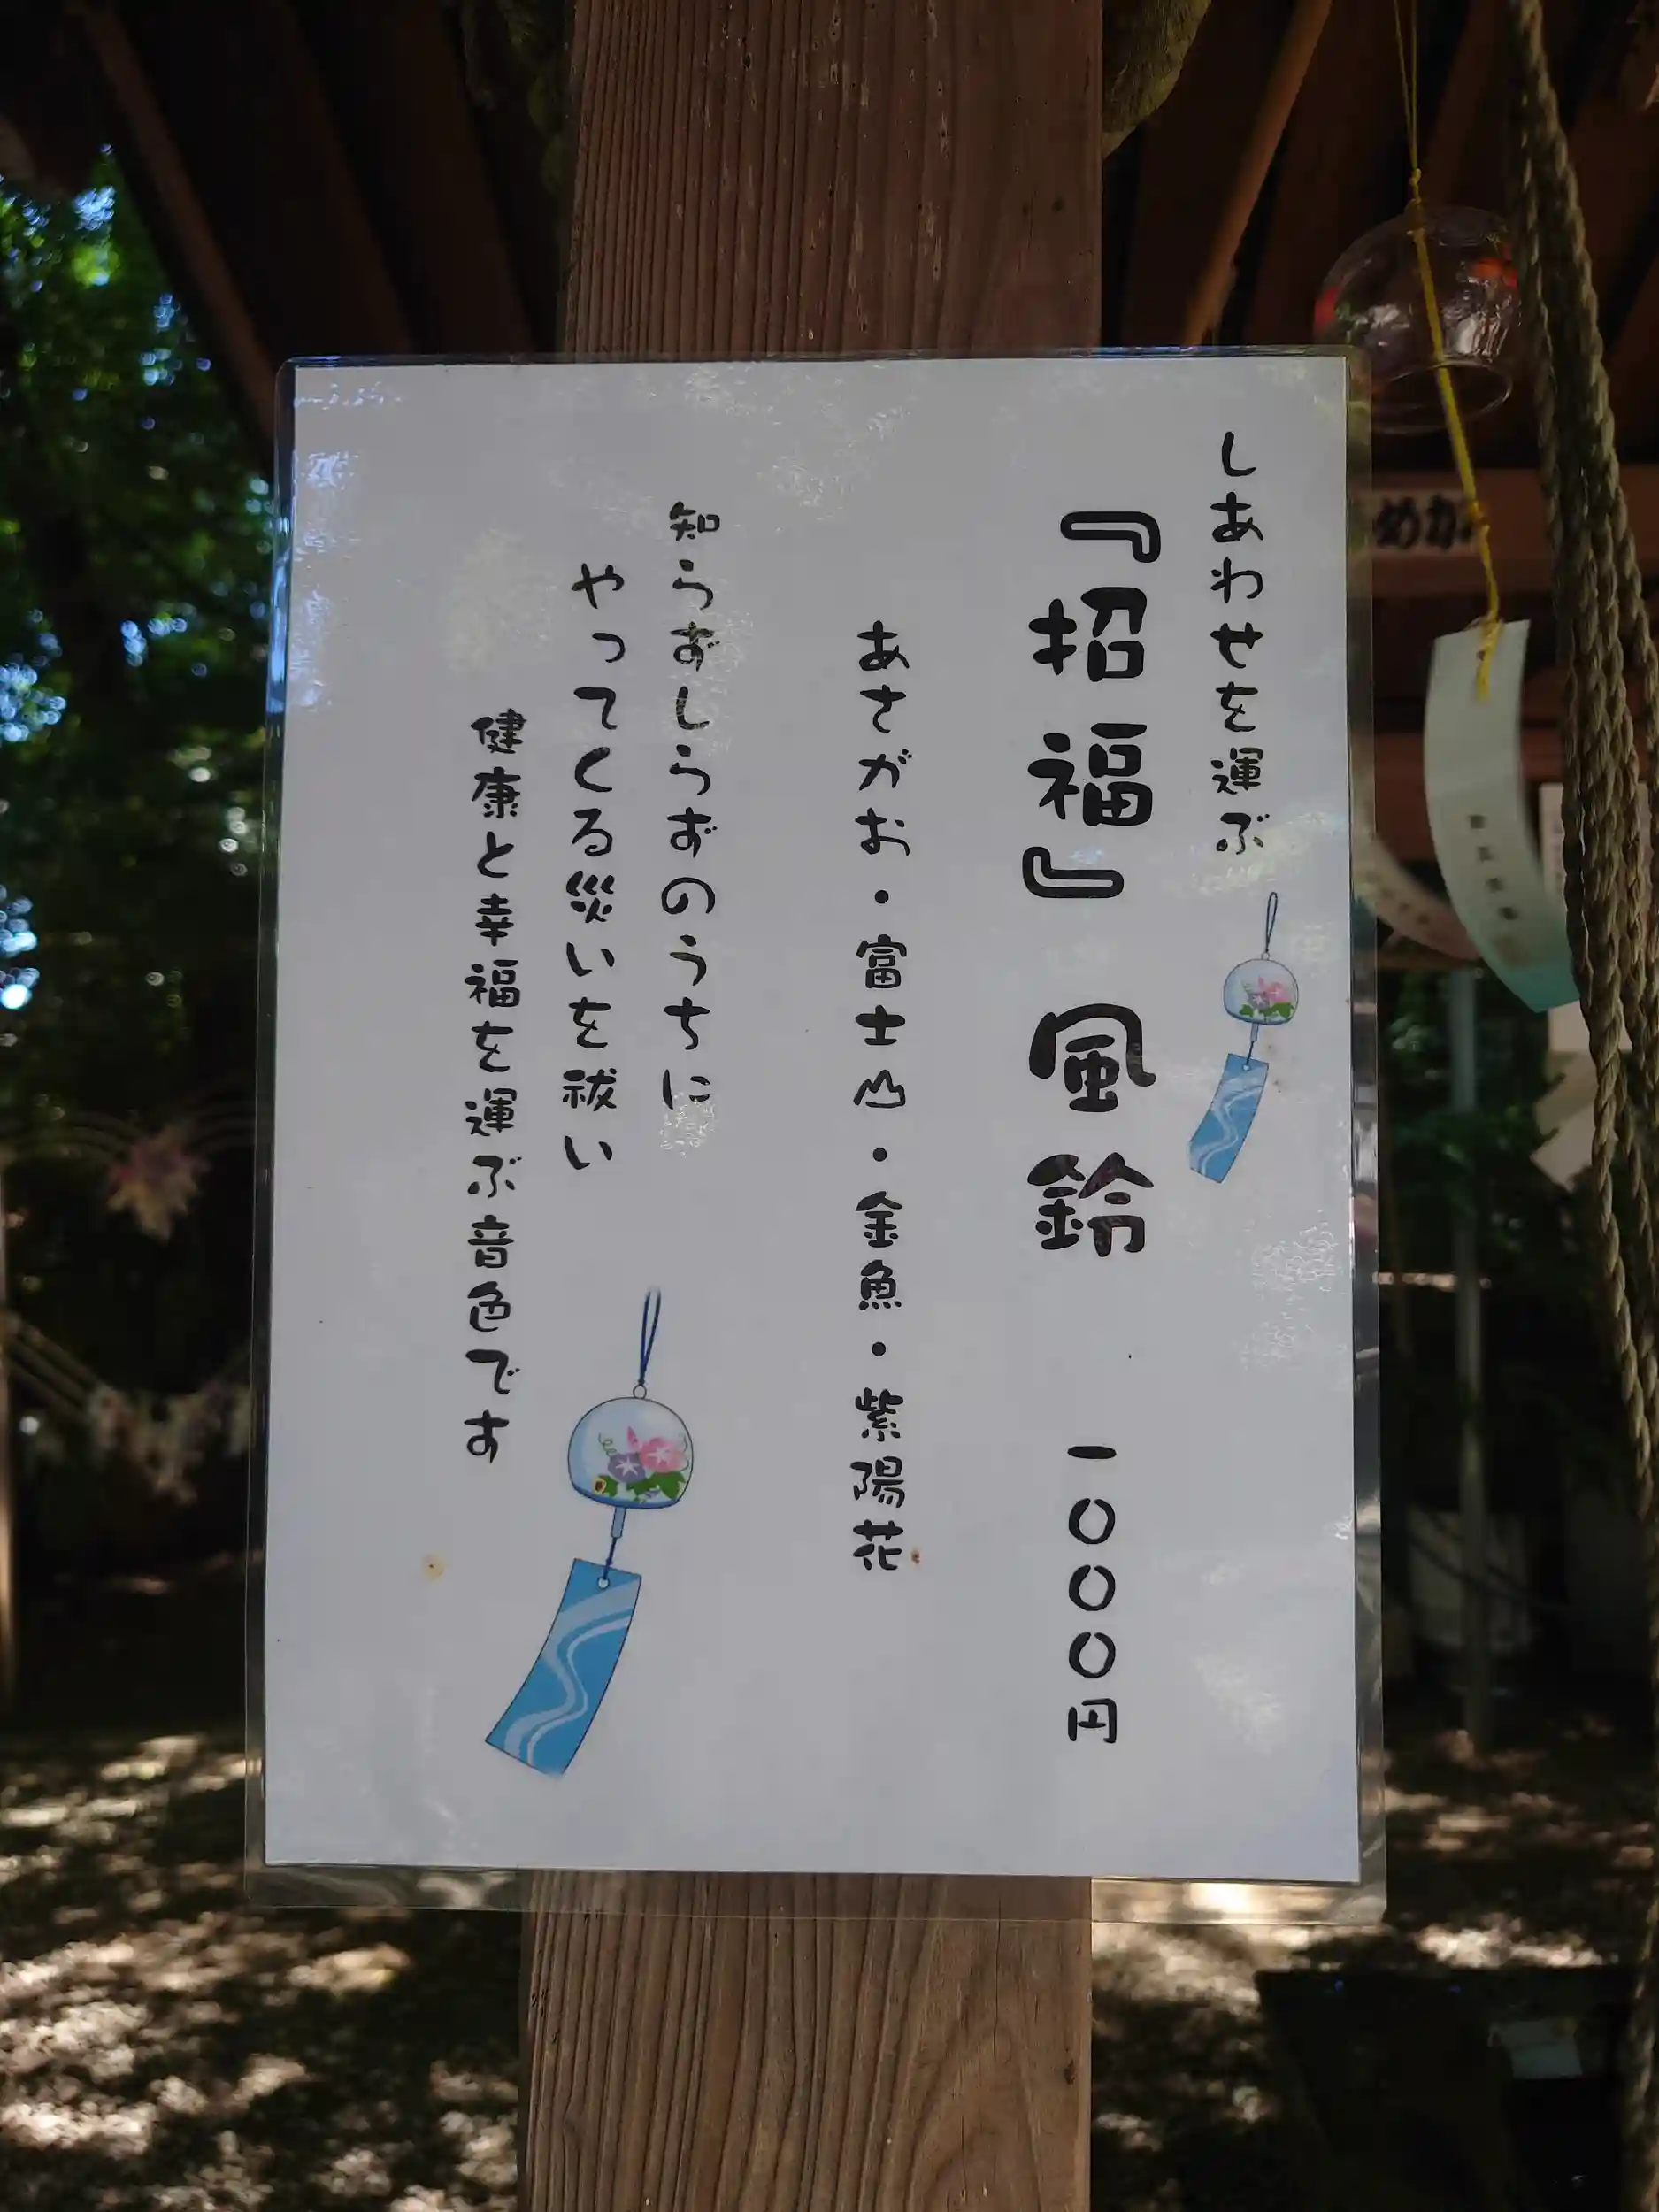 しあわせを運ぶ
『招福』風鈴 一〇〇〇円
あさがお・富士山・金魚・紫陽花
知らずしらずのうちに
やってくる災いを祓い
健康と幸福を運ぶ音色です